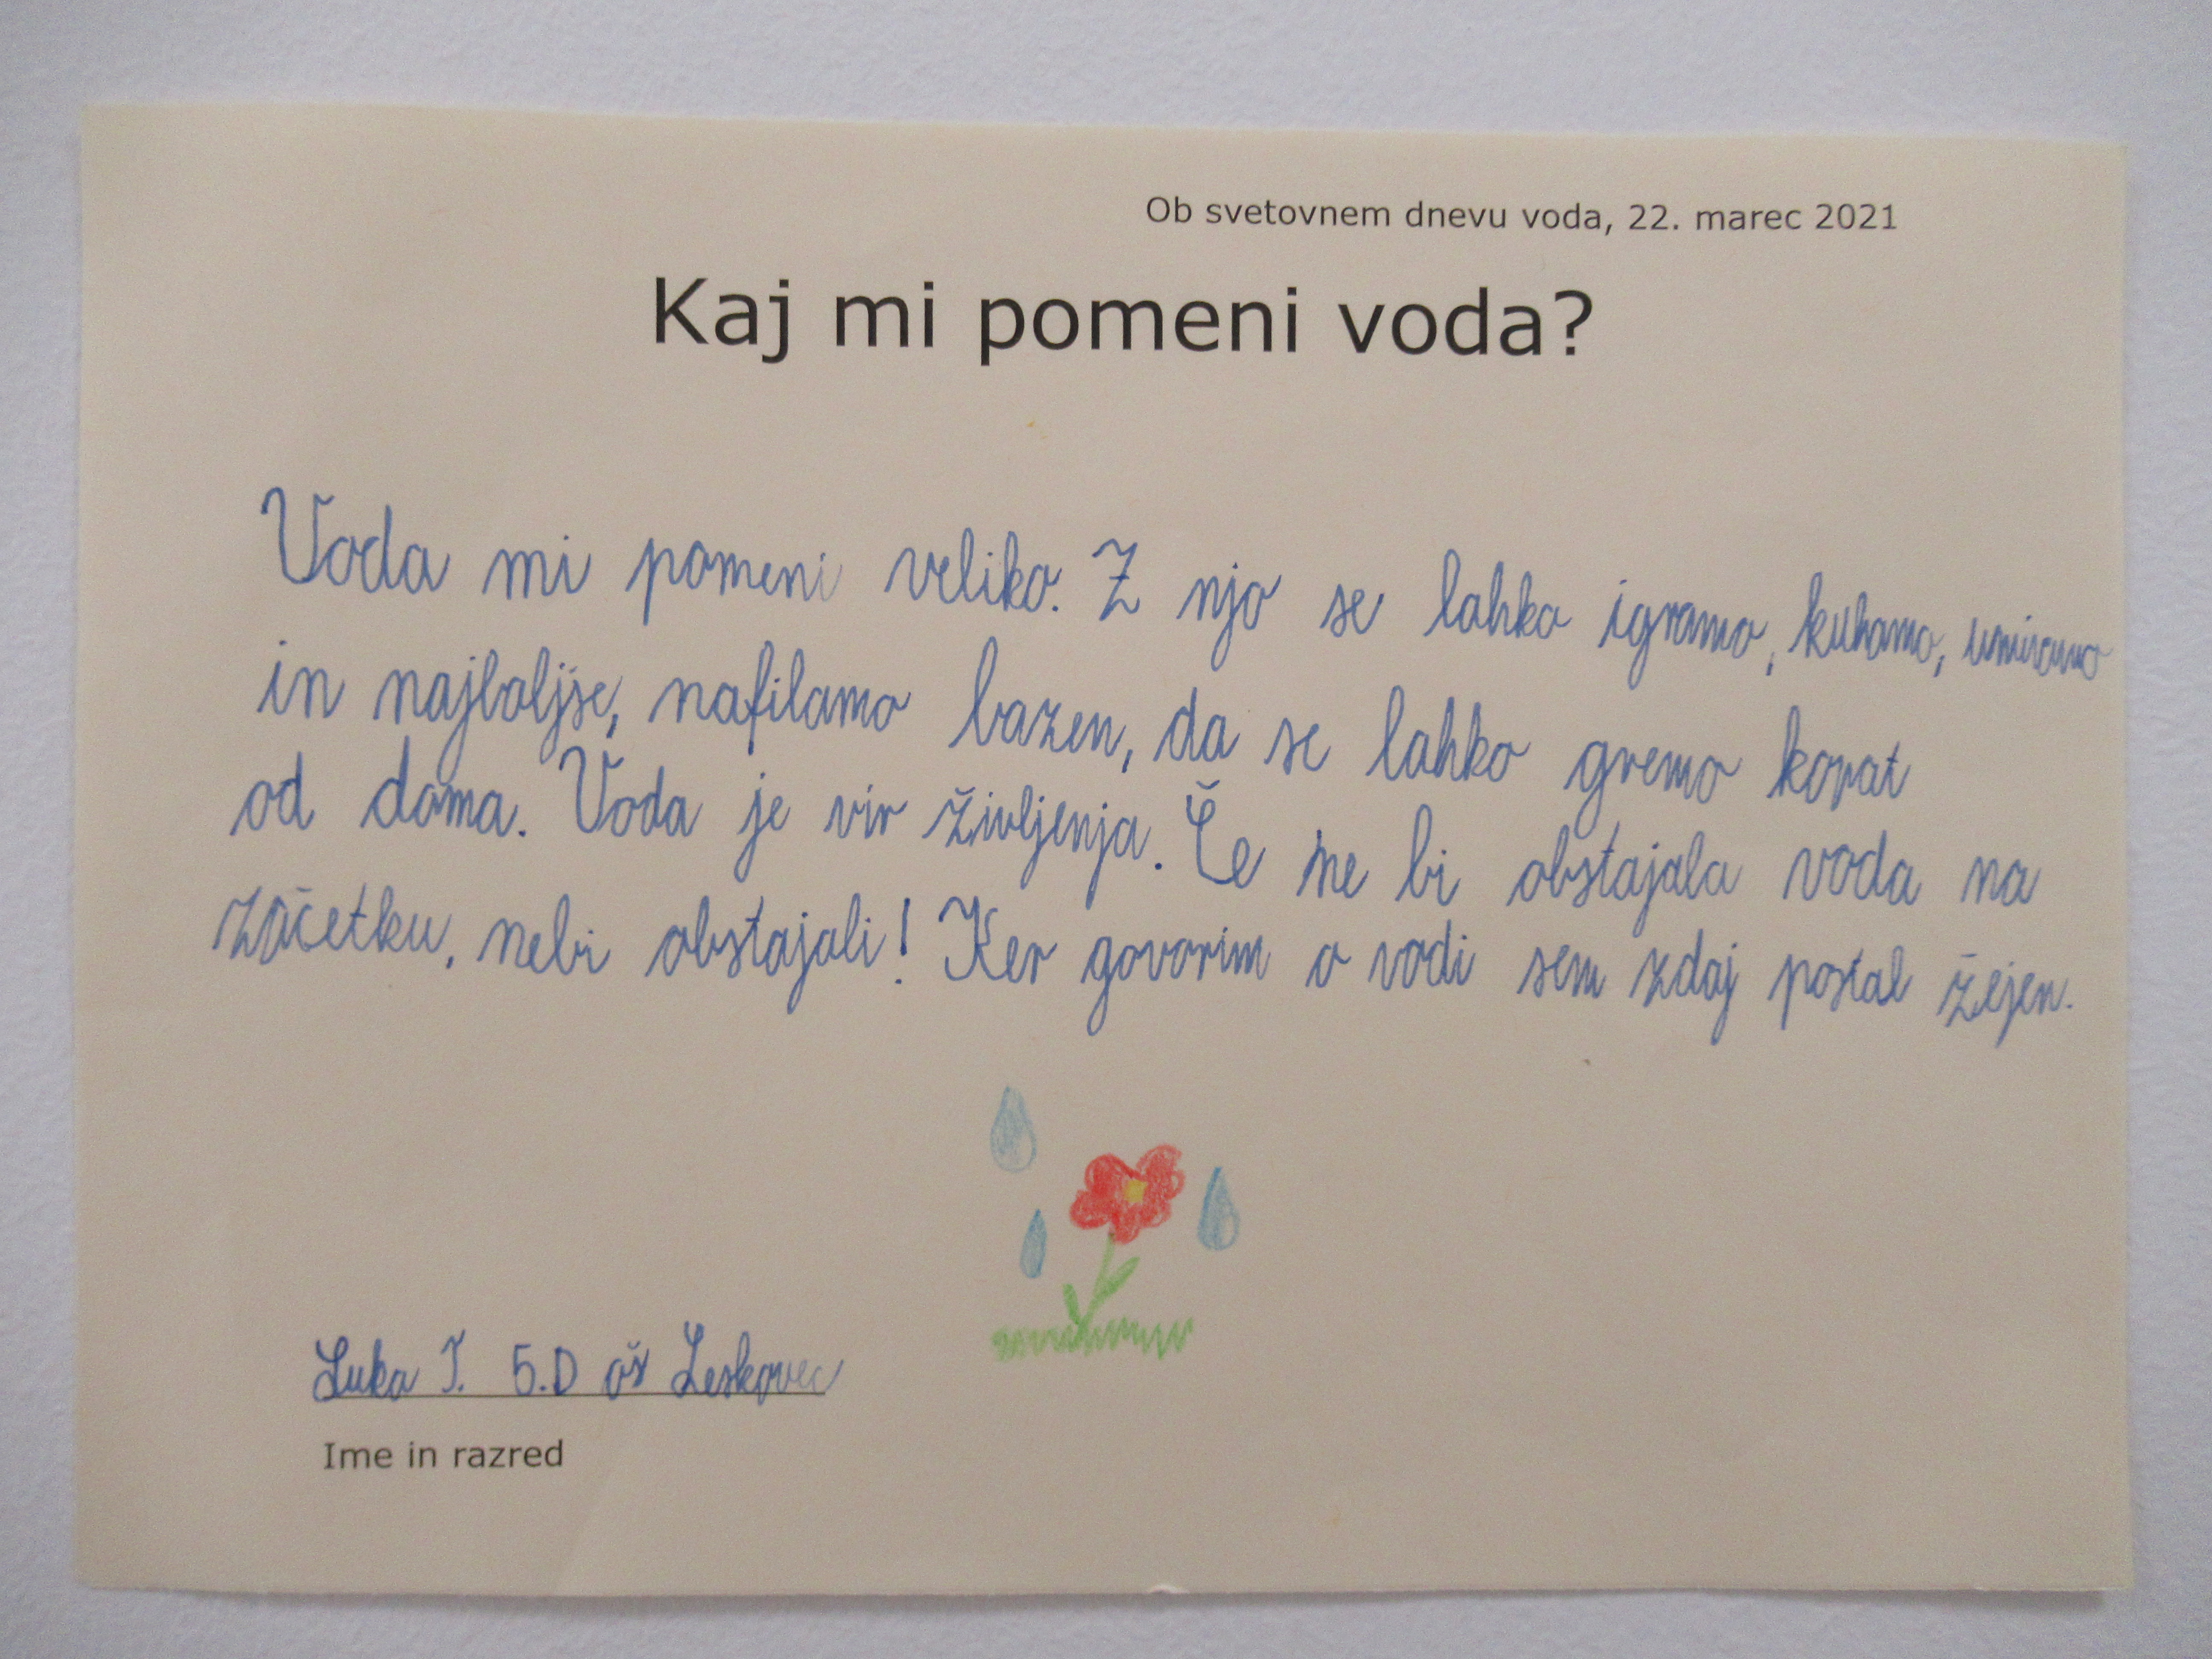 Ob svetovnem dnevu voda, 22. marec 2021
Kaj mi pomeni voda?
Voda mi pomeni veliko. Z njo se lahko igramo, kuhamo, umivamo
in najboljše, nafilamo bazen, da se lahko gremo kopat
od doma. Voda je vir življenja. Če ne bi obstajala voda na
začetku, nebi obstajali! Ker govorim o vodi sem zdaj postal žejen.
Luka J. 5.D oš Leskovec
Ime in razred